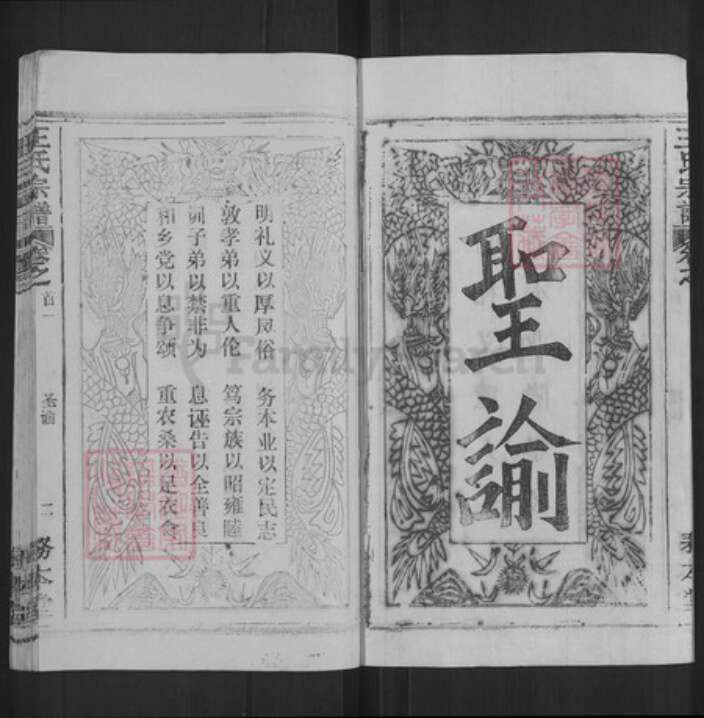 聖諭
明礼义以厚风俗 务本业以定民志
敦孝弟以重人伦 笃宗族以昭雍睦
训子弟以禁非为 息诬告以全善良
和乡党以息争颂 重农桑以足衣食
王氏宗譜
卷之
首一
圣谕
二
务本堂
王氏宗譜
卷之
FamilySearch